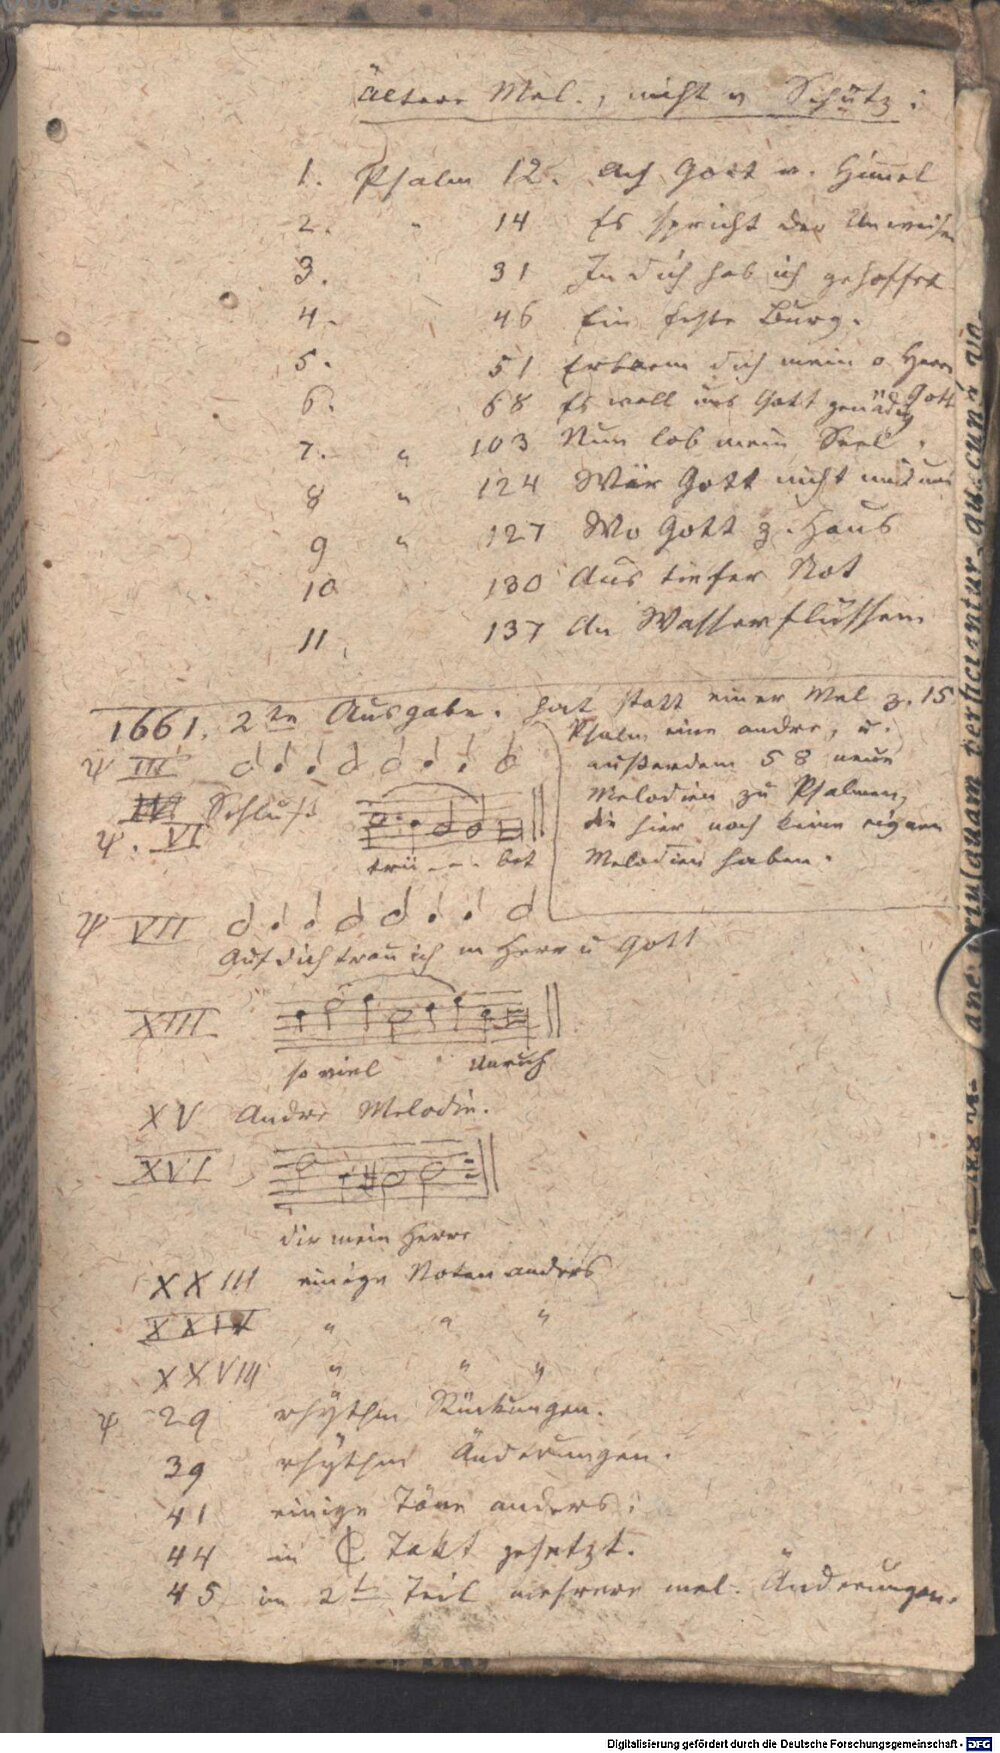 Ältere Mel., nicht v Schütz:
1. Psalm 12. Ach Gott v. Himmel
2. " 14 Es spricht der Unweisen
3. 31 In dich hab ich gehoffet
4. 46 Ein feste Burg.
5. 51 Erbarm dich mein o Herre Gott
6. 68 Es woll uns Gott genädig
7. " 103 Nun lob mein Seel.
8 " 124 Wär Gott nicht mit uns
9 " 127 Wo Gott z. Haus
10 130 Aus tiefer Not
11. 137 An Wasserflüssen
1661. 2te Ausgabe. hat statt einer Mel z. 15
Psalm eine andre, u.
außerdem 58 neue
Melodien zu Psalmen,
die hier noch keine eigenen
Melodien haben.
Ψ III
Schluß
Ψ. VI
trü - - - bet
Ψ VII
Auf dich trau ich m Herr u Gott
XIII
so viel Unruh
XV Andre Melodie.
XVI
dir mein Herre
XXIII einige Noten anders
XXIV " " "
XXVIII " " "
Ψ 29 rhythm Rückungen.
39 rhythm Änderungen.
41 einige Töne anders:
44 in ₵ Takt gesetzt.
45 im 2t Teil mehrere mel. Änderungen.
Digitalisierung gefördert durch die Deutsche Forschungsgemeinschaft - DFG